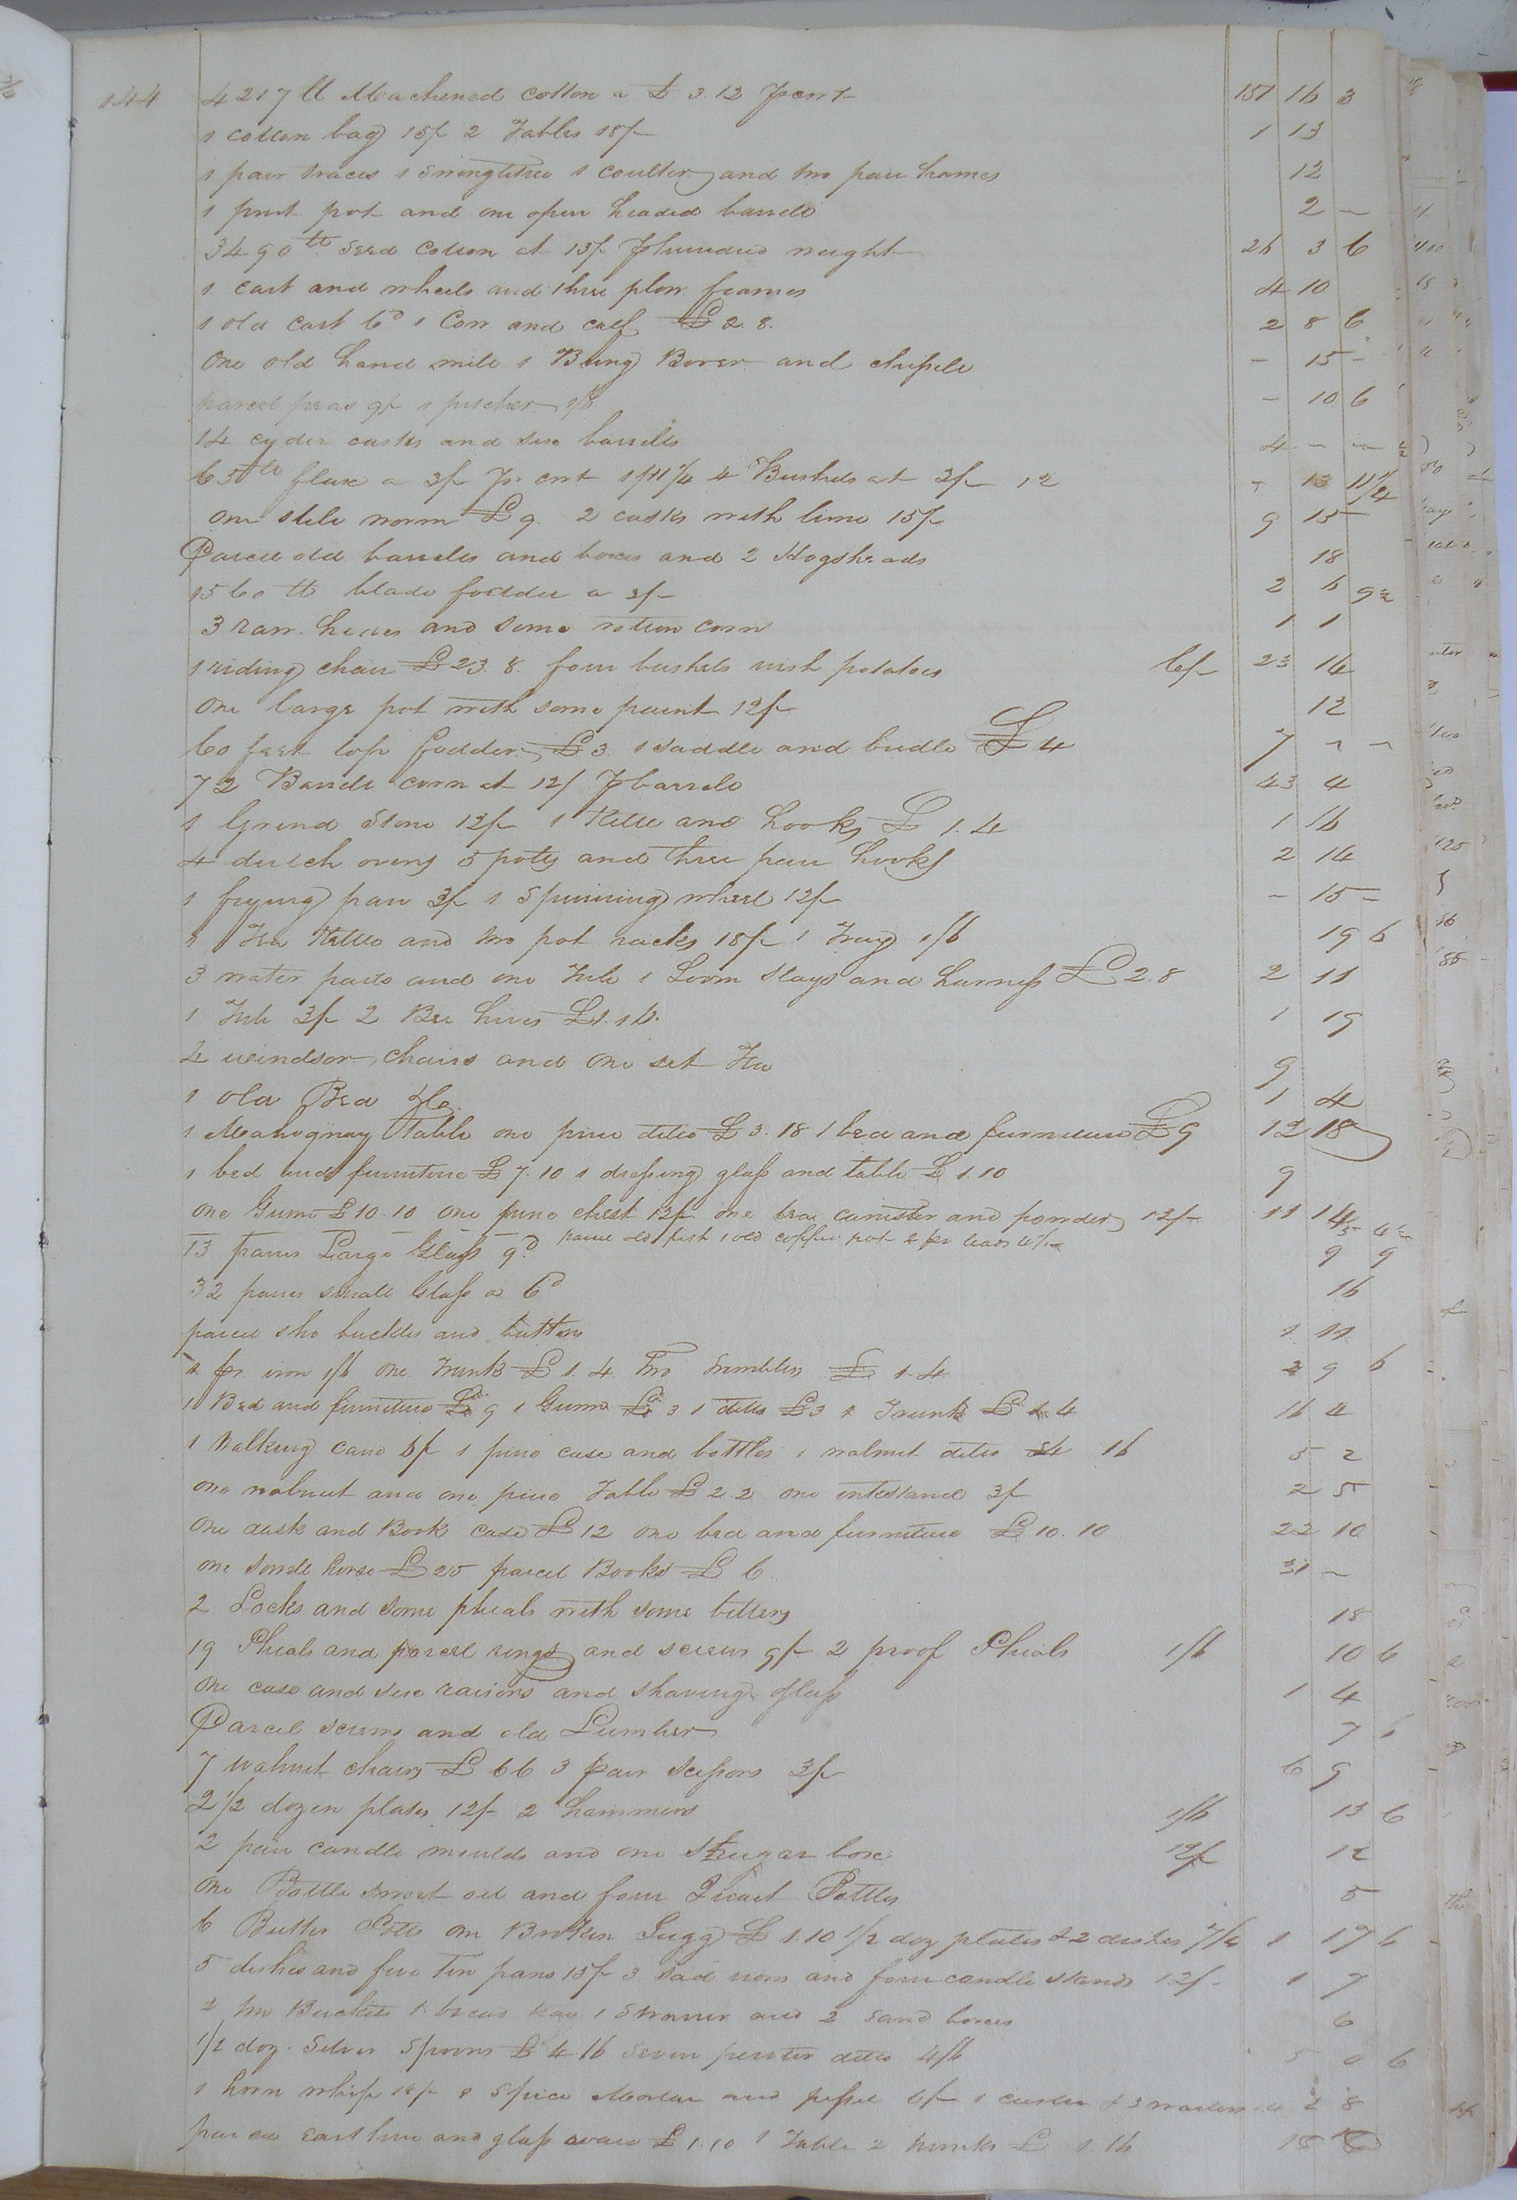 144 4217 lb Machened cotton a £ 3.12 pr cwt 151 16 3
1 cotton bag 15/- 2 Tables 18/- 1 13
1 pair traces 1 swingletree 1 coulter and two pair hames 12
1 pot and one open headed barrele 2 –
3490 lb seed cotton at 15/- p hundred weight 26 3 6
1 cart and wheels and three plow frames 4 10
1 old cart 6d 1 Cow and calf £ 2.8. 2 8 6
One old hand mill 1 Bung Borer and chissle – 15 –
parcel peas 9/- 1 pitcher 1/6 – 10 6
14 cyder casks and six barrels 4 – –
65 lb flax a 3/- pr cwt 1/11 1/4 4 Bushels at 3/- 12 – 13 11 1/4
One stile worm £ 9. 2 casks with lime 15/- 9 15 –
Parcel old barreles and boxes and 2 Hogsheads 18
1560 lb blade fodder a 3/- 2 6 9
3 raw hides and some rotten corn 1 1
1 riding chair £ 23.8. four bushels irish potatoes 6/- 23 14
One large pot with some paint 12/- 12
60 feet top fodder £ 3 1 saddle and bridle £ 4 7 – –
72 Barrels corn at 12/ p barrele 43 4
1 Grind Stone 12/- 1 Kettle and hooks £ 1.4 1 16
4 dutch ovens 5 pots and three pair hooks 2 14
1 frying pan 3/- 1 Spinning wheel 12/- – 15 –
1 Tea Kettle and two pot racks 18/- 1 Tray 1/6 19 6
3 water pails and one Tub 1 Loom Slays and harness £ 2.8 2 11
1 Tub 3/- 2 Bee hives £ 1.16. 1 19
4 windsor chairs and one set Tea 9
1 old Bed &c. 1 4
1 Mahognay Table one pine ditto £ 3.18 1 bed and furniture £ 9 12 18
1 bed and furniture £ 7.10 1 dressing glass and table £ 1.10 9
One Gunn £ 10.10 one pine chest 12/- one tea canister and powder 12/- 11 14
parcel old 1 old coffee pot
13 panes Large Glass 9d 9 9
32 panes small Glass a 6d 16
parcel sho buckles and buttons 1 11
iron 1/6 one Trunk £ 1.4 Two £ 1.4 2 9 6
1 Bed and furniture £ 9 1 Gunn £ 3 1 ditto £ 3 1 Trunk £ 1.4 16 4
1 Walking cane 6/- 1 pine case and bottles 1 walnut ditto 16 5 2
one walnut and one pine Table £ 2.2 one inkstand 3/- 2 5
One desk and Book case £ 12 one bed and furniture £ 10.10 22 10
one horse £ 25 parcel Books £ 6. 31 –
2 Locks and some phials with some bitters 18
19 Phials and parcel rings and screws 9/- 2 proof Phials 1/6 10 6
One case and six raisors and shaving glass 1 4
Parcel screws and old Lumber 7 6
7 walnut chairs £ 6 6 3 pair scissors 3/- 6 9
2 1/2 dozen plates 12/- 2 hammers 1/6 13 6
2 pair candle moulds and one shugar box 12/- 12
One Bottle sweet oil and four Quart Bottles 5
6 Butter Potts one Broken Jugg £ 1.10 1/2 doz plates & 2 dishes 7/6 1 17 6
5 dishes and five Tin pans 15/- 3 sad irons and four candle stands 12/- 1 7
2 Buckets 1 bread tray 1 Strainer and 2 sand boxes 6
1/2 doz. Silver Spoons £ 4.16 Seven pewter ditto 4/6 5 0 6
1 horn whip 18/- 1 Spice Mortar and pessel 6/- 1 & 3 2 8
parcel earthen and glass ware £ 1.10 1 Table 2 trunks £ 1.16